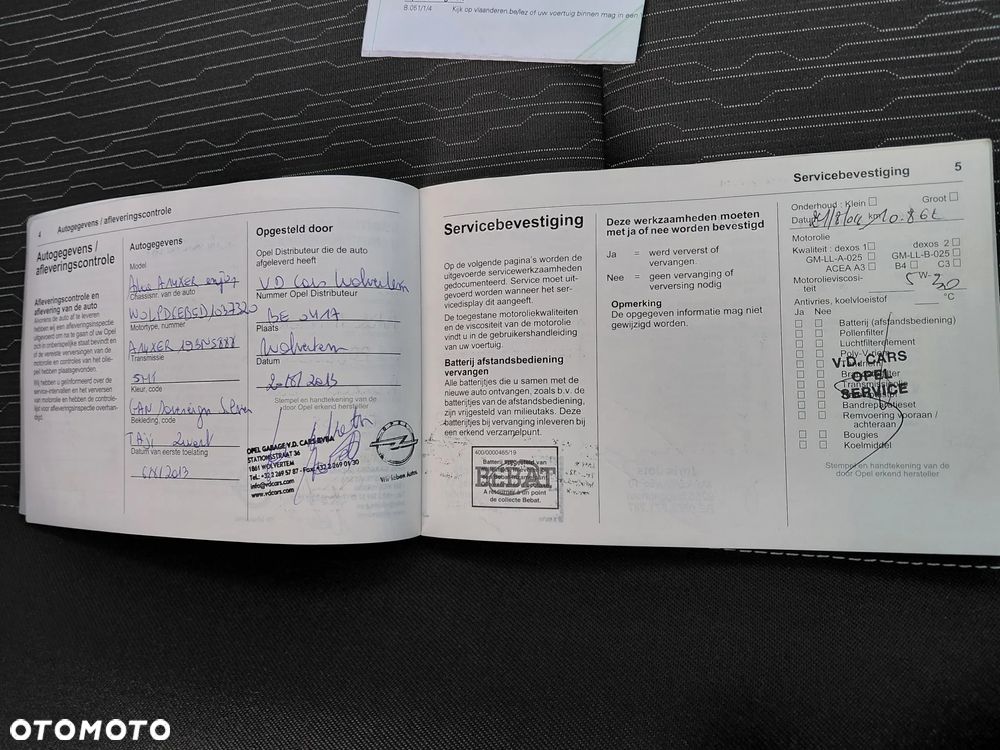 B.051/1/4 Kijk op vlaanderen.be/lez of uw voertuig binnen mag in een
4 Autogegevens / afleveringscontrole
Autogegevens /
afleveringscontrole
Aflevering­scontrole en
aflevering van de auto
Alvorens de auto af te leveren
hebben wij een afleveringsinspectie
uitgevoerd om na te gaan of uw Opel
zich in onberispelijke staat bevindt en
of de vereiste verversingen van de
motorolie en controles van het olie-
peil hebben plaatsgevonden.
Wij hebben u geïnformeerd over de
service-intervallen en het verversen
van motorolie en hebben de controle-
lijst voor afleveringsinspectie overhan-
digd.
Autogegevens
Model
Chassisnr. van de auto
Motortype, nummer
Transmissie
5MT
Kleur, code
Bekleding, code
TAJI Zwart
Datum van eerste toelating
2013
Opgesteld door
Opel Distributeur die de auto
afgeleverd heeft
V D Cars Wolvertem
Nummer Opel Distributeur
BE 0417
Plaats
Wolvertem
Datum
2013
Stempel en handtekening van de
door Opel erkend hersteller
OPEL GARAGE V.D. CARS BVBA
STATIONSSTRAAT 36
1861 WOLVERTEM
Tel.: +32 2 269 57 87 - Fax: +32 2 269 01 30
info@vdcars.com
www.vdcars.com
Wir leben Autos.
Servicebevestiging 5
Servicebevestiging
Op de volgende pagina's worden de
uitgevoerde servicewerkzaamheden
gedocumenteerd. Service moet uit-
gevoerd worden wanneer het ser-
vicedisplay dit aangeeft.
De toegestane motoroliekwaliteiten
en de viscositeit van de motorolie
vindt u in de gebruikershandleiding
van uw voertuig.
Batterij afstandsbediening
vervangen
Alle batterijtjes die u samen met de
nieuwe auto ontvangen, zoals b.v. de
batterijtjes van de afstandsbediening,
zijn vrijgesteld van milieutaks. Deze
batterijtjes bij vervanging inleveren bij
een erkend verzamelpunt.
400/0000465/19
BEBAT
A retourner à un point
de collecte Bebat.
Deze werkzaamheden moeten
met ja of nee worden bevestigd
Ja = werd ververst of
vervangen.
Nee = geen vervanging of
verversing nodig
Opmerking
De opgegeven informatie mag niet
gewijzigd worden.
Onderhoud : Klein Groot
Datum km
Motorolie
Kwaliteit : dexos 1 dexos 2
GM-LL-A-025 GM-LL-B-025
ACEA A3 B4 C3
Motorolieviscosi-
teit 5 W- 30
Antivries, koelvloeistof °C
Ja Nee
Batterij (afstandsbediening)
Pollenfilter
Luchtfilterelement
V.D. CARS
OPEL
SERVICE
Bandreparatieset
Remvoering vooraan /
achteraan
Bougies
Koelmiddel
Stempel en handtekening van de
door Opel erkend hersteller
OTOMOTO